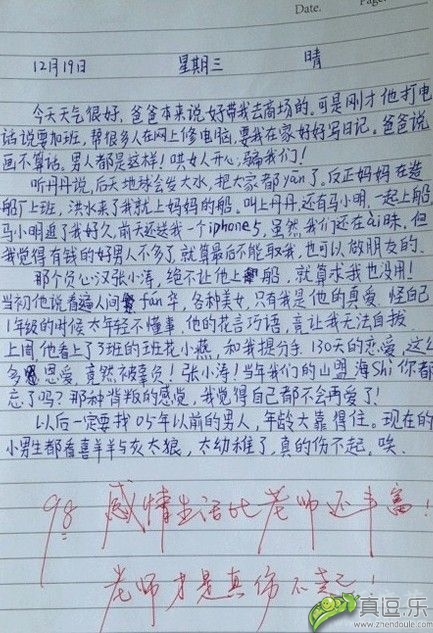 Date.
Page.
12月19日 星期三 晴
今天天气很好，爸爸本来说好带我去商场的。可是刚才他打电
话说要加班，帮很多人在网上修电脑，要我在家好好写日记。爸爸说
画不算话。男人都是这样！哄女人开心，骗我们！
听丹丹说，后天地球会发大水，把大家都yān了。反正妈妈在造
船厂上班，洪水来了我就上妈妈的船。叫上丹丹，还有马小明，一起上船。
马小明追了我好久，前天还送我一个iphone5，虽然我们还在ài昧，但
我觉得有钱的好男人不多了，就算最后不能取我，也可以做朋友的。
那个负心汉张小涛，绝不让他上船，就算求我也没用！
当初他说看遍人间fán华，各种美女，只有我是他的真爱，怪自己
1年级的时候太年轻不懂事，他的花言巧语，竟让我无法自拔。
上周，他看上了3班的班花小燕，和我提分手。130天的恋爱，这么
多恩爱，竟然被辜负！张小涛！当年我们的山盟海Shì你都
忘了吗？那种背叛的感觉，我觉得自己都不会再爱了！
以后一定要找05年以前的男人，年龄大靠得住。现在的
小男生都看喜羊羊与灰太狼，太幼稚了，真的伤不起，唉。
98 感情生活比老师还丰富！
老师才是真伤不起！
真逗.乐
www.zhendoule.com